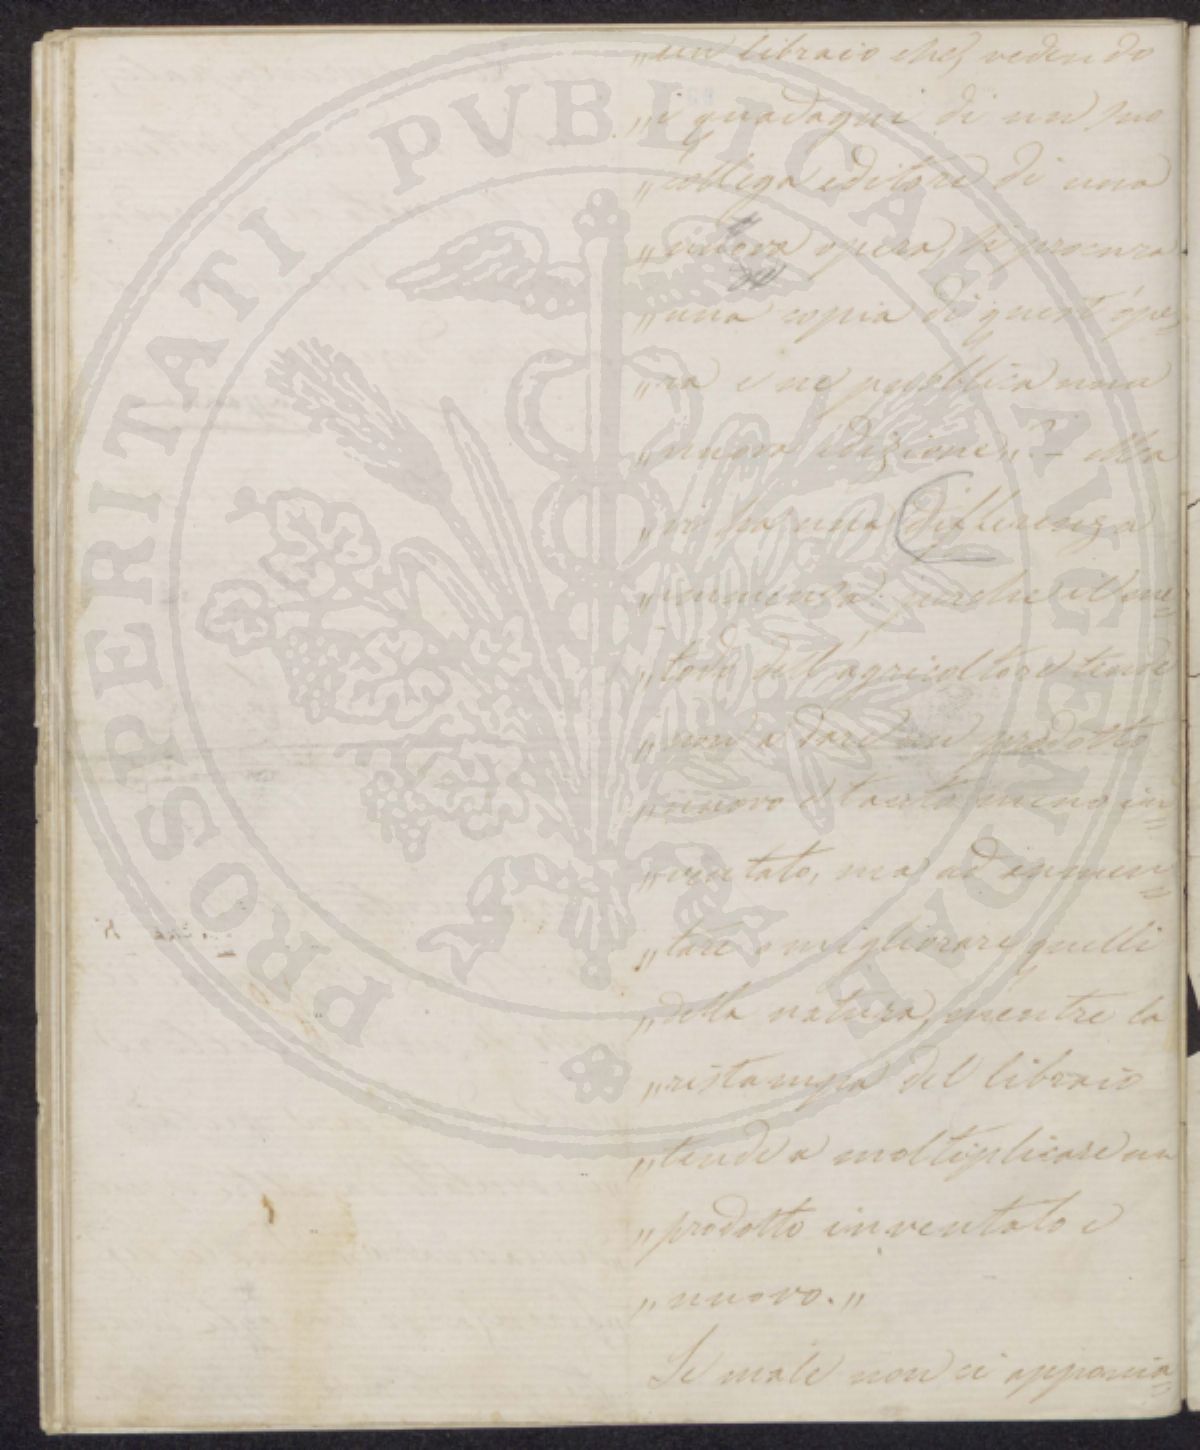 „un libraio che, vedendo
„i guadagni di un suo
„collega editore di una
„nuova opera, si procura
„una copia di quest'ope=
„ra e ne pubblica una
„nuova edizione„? – Ma
„vi ha una differenza
„immensa: perchè il me=
„todo dell'agricoltore tende
„non a dare un prodotto
„nuovo e tanto meno in=
„ventato, ma ad aumen=
„tare o migliorare quelli
„della natura, mentre la
„ristampa del libraio
„tende a moltiplicare un
„prodotto inventato e
„nuovo.„
Se male non ci apponia=
PROSPERITATI PVBLICAE AVGENDAE